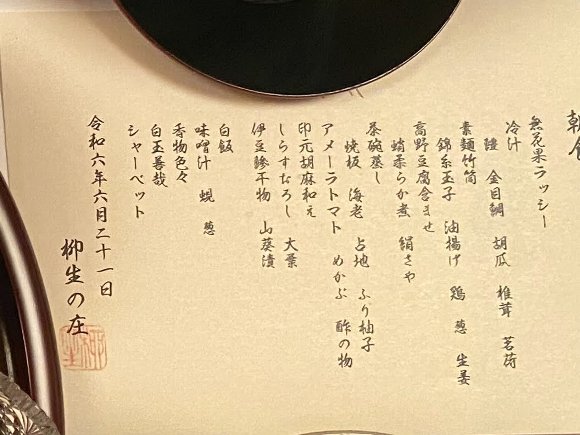 朝食
無花果ラッシー
冷汁
金目鯛 胡瓜 椎茸 茗荷
素麺竹筒
錦糸玉子 油揚げ 鶏 葱 生姜
高野豆腐含ませ
蛸柔らか煮 絹さや
茶碗蒸し
焼板 海老 占地 ふり柚子
アメーラトマト めかぶ 酢の物
印元胡麻和え
しらすおろし 大葉
伊豆鯵干物 山葵漬
白飯
味噌汁 蜆 葱
香物色々
白玉善哉
シャーベット
令和六年六月二十一日
柳生の庄